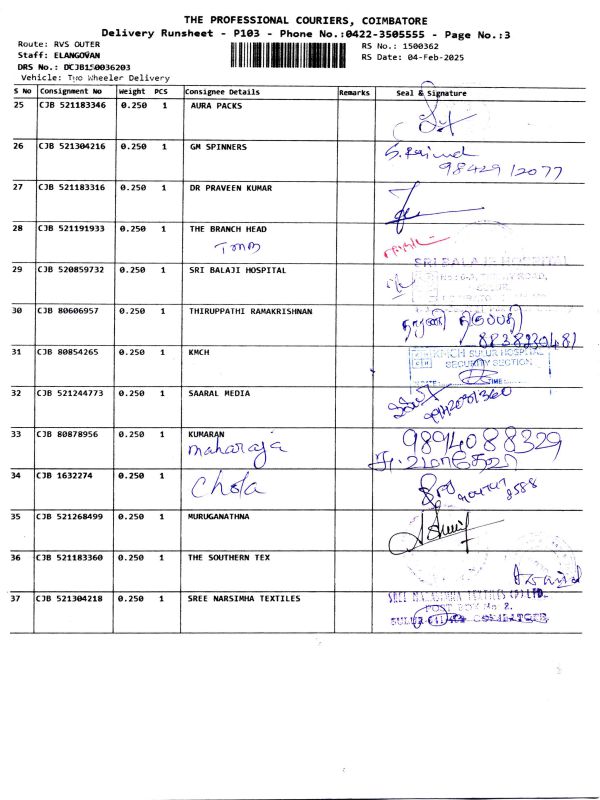 THE PROFESSIONAL COURIERS, COIMBATORE
Delivery Runsheet - P103 - Phone No.:0422-3505555 - Page No.:3
Route: RVS OUTER RS No.: 1500362
Staff: ELANGOVAN RS Date: 04-Feb-2025
DRS No.: DCJB150036203
Vehicle: Two Wheeler Delivery
S No Consignment No Weight PCS Consignee Details Remarks Seal & Signature
25 CJB 521183346 0.250 1 AURA PACKS
26 CJB 521304216 0.250 1 GM SPINNERS
98429 12077
27 CJB 521183316 0.250 1 DR PRAVEEN KUMAR
28 CJB 521191933 0.250 1 THE BRANCH HEAD
TMB
SRI BALAJI HOSPITAL
29 CJB 520859732 0.250 1 SRI BALAJI HOSPITAL
30 CJB 80606957 0.250 1 THIRUPPATHI RAMAKRISHNAN
8838230481
31 CJB 80854265 0.250 1 KMCH KMCH SULUR HOSPITAL
SECURITY SECTION
DATE: TIME
32 CJB 521244773 0.250 1 SAARAL MEDIA
33 CJB 80878956 0.250 1 KUMARAN 9894088329
maharaja
34 CJB 1632274 0.250 1
Chola
35 CJB 521268499 0.250 1 MURUGANATHNA
36 CJB 521183360 0.250 1 THE SOUTHERN TEX
37 CJB 521304218 0.250 1 SREE NARSIMHA TEXTILES SREE NARASIMHA TEXTILES (P) LTD.
POST BOX No 2.
SULUR-641 402 COIMBATORE